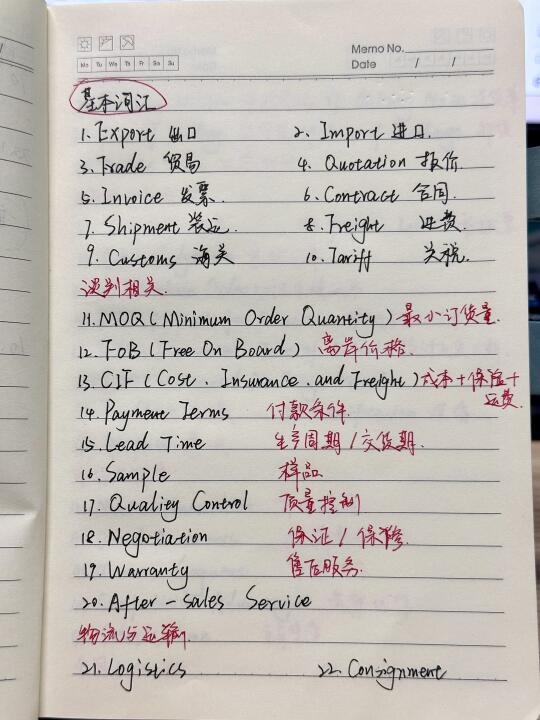 Memo No.
Mo Tu We Th Fr Sa Su
Date / /
基本词汇
1. Export 出口 2. Import 进口.
3. Trade 贸易 4. Quotation 报价
5. Invoice 发票. 6. Contract 合同.
7. Shipment 装运. 8. Freight 运费.
9. Customs 海关 10. Tariff 关税.
谈判相关.
11. MOQ (Minimum Order Quantity) 最小订货量.
12. FOB (Free On Board) 离岸价格.
13. CIF (Cost. Insurance. and Freight) 成本+保险+
运费.
14. Payment Terms 付款条件.
15. Lead Time 生产周期/交货期.
16. Sample 样品
17. Quality Control 质量控制
18. Negotiation 保证/保修.
19. Warranty 售后服务.
20. After-sales Service
物流与运输
21. Logistics 22. Consignment